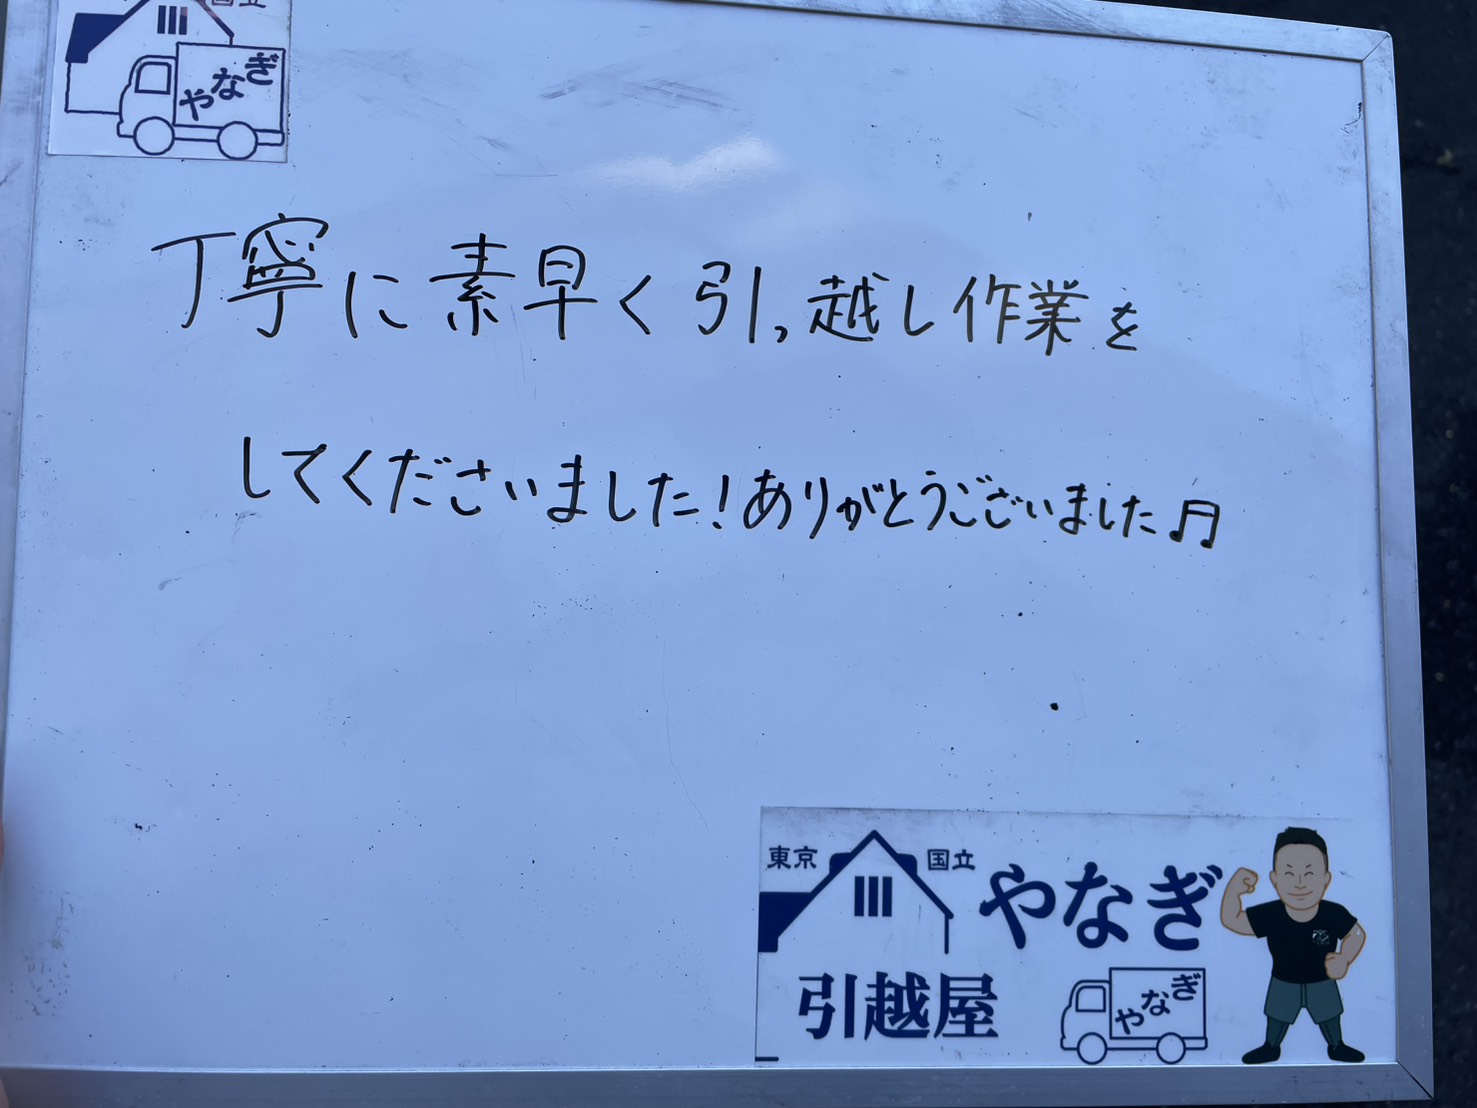 国立
やなぎ
丁寧に素早く引っ越し作業を
してくださいました!ありがとうございました♫
東京 国立 やなぎ
引越屋
やなぎ